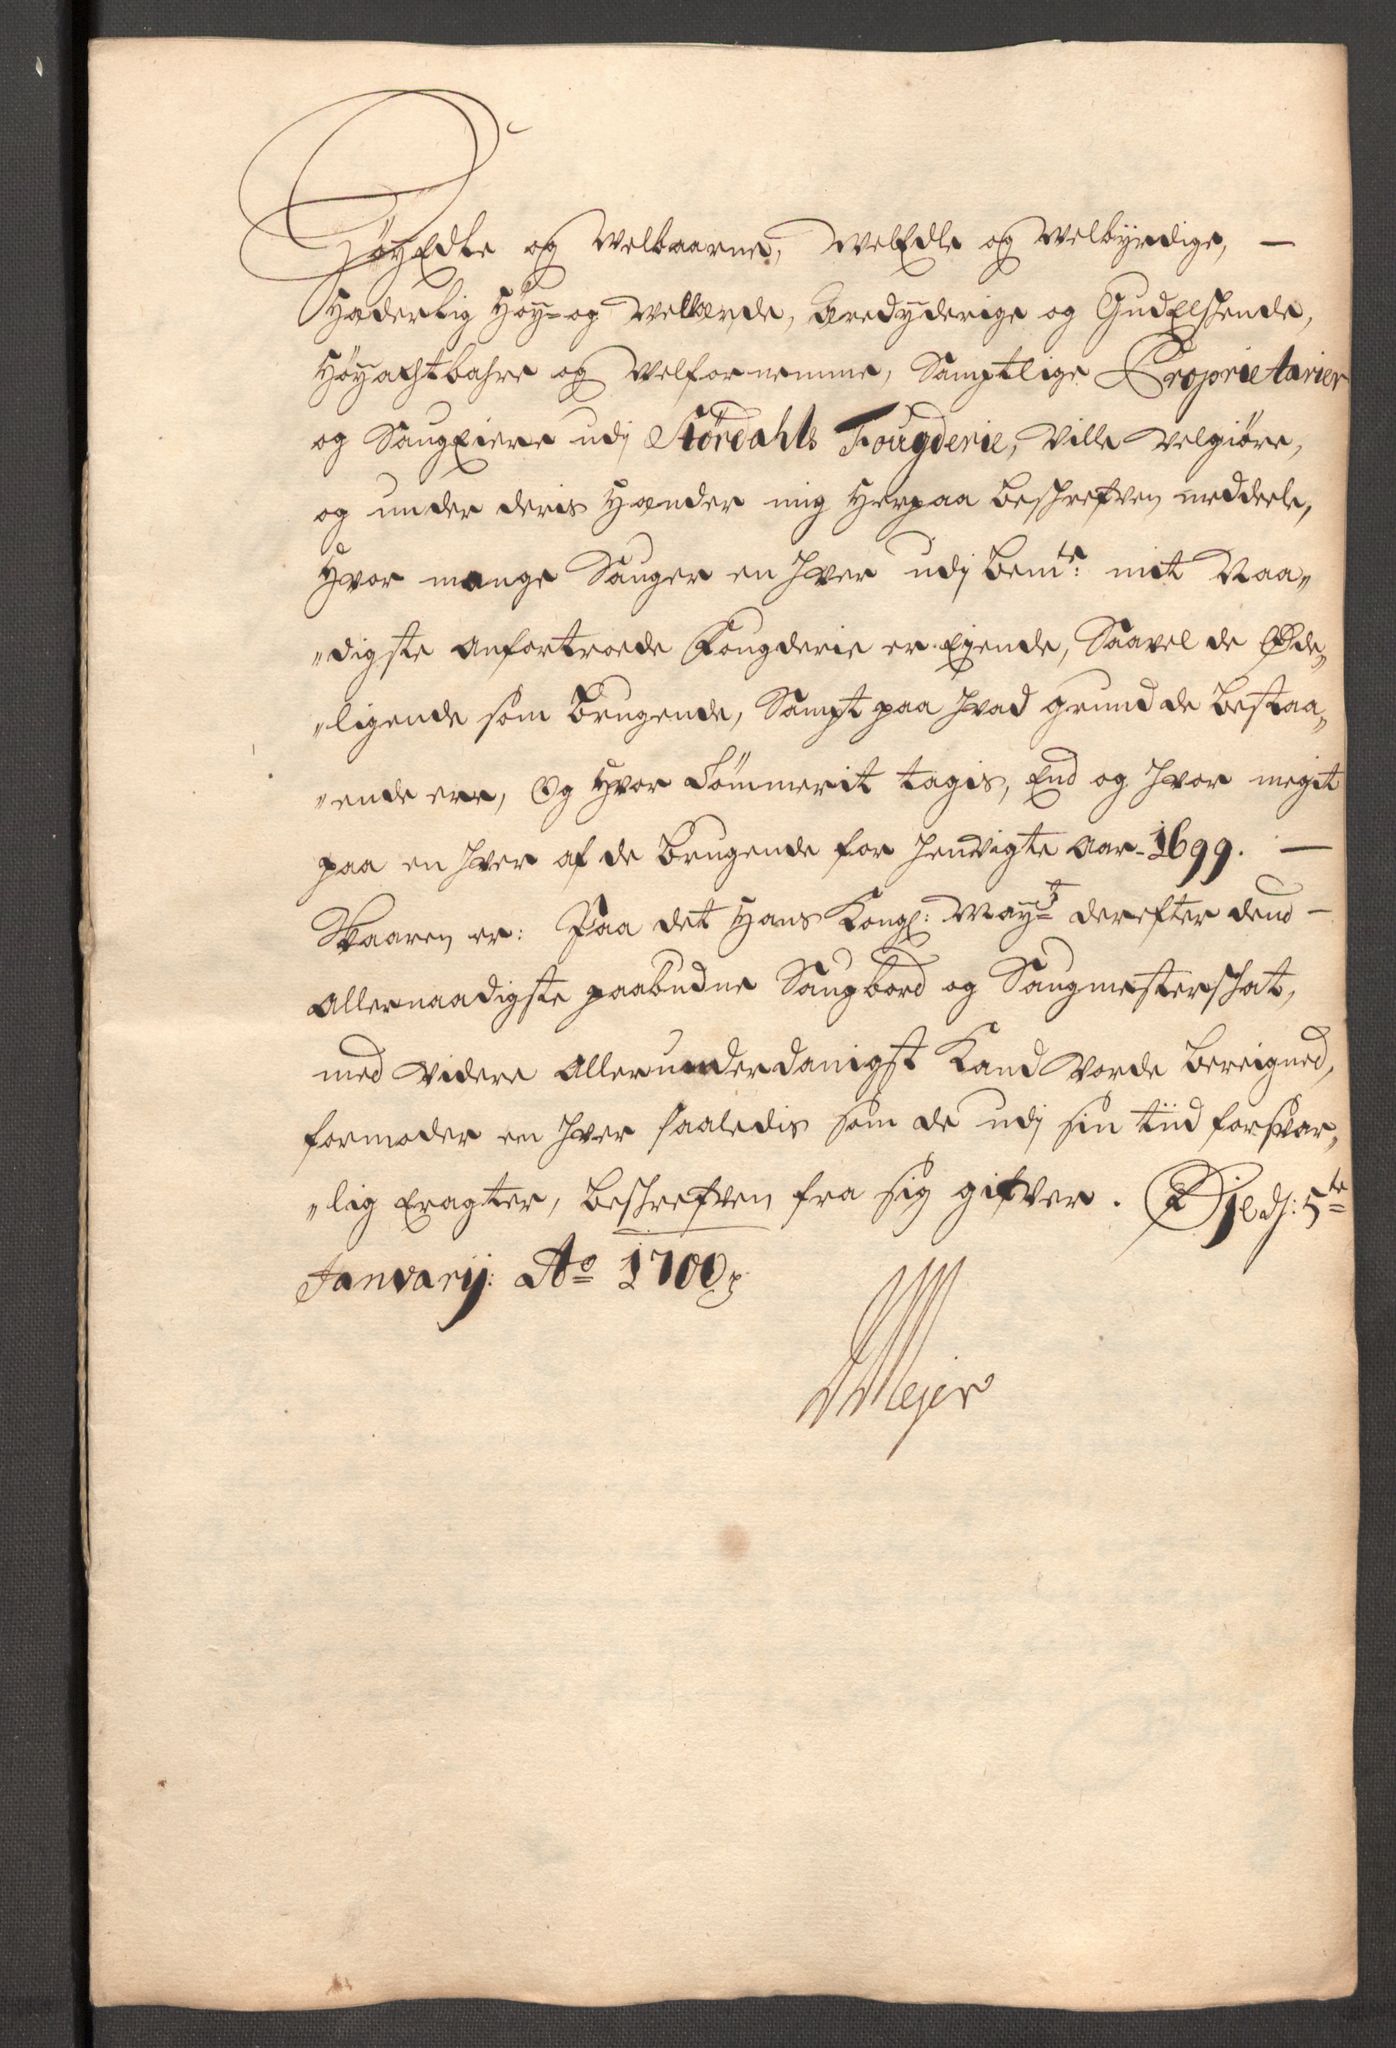 HøyEdle og Welbaarne, WelEdle og Welbyrdige, —
Hæderlig Høy= og Wellærde, Æredyderige og GudElskende,
Høyachtbahre og Welfornemme, Samptlige Proprietarier
og SaugEiere udj Størdahls Fougderie, Ville Velgiøre,
og under deris Hænder mig Herpaa beskrefven meddeele,
Hvor mange Sauger en hver udj bemte: mit Naa„
„digste Anfortroede Fougderie er Ejende, Saavel de Øde„
„ligende som Brugende, Sampt paa hvad grund de bestaa„
„ende ere, Og Hvor Tømmerit tagis, End og hvor megit
paa en hver af de Brugende for henvigte Aar 1699. —
Skaaren er: Paa det Hans Kongl: Mayts derefter dend —
Allernaadigste paabudne Saugbord og Saugmesterskat,
med Videre Allerunderdanigst Kand Vorde bereigned,
formoder en hver saaledis som de udj sin tiid forsvar„
„lig Eragter, beskrefven fra sig gifver. d: 5te
Januarij: Ao 1700 p
Mejer